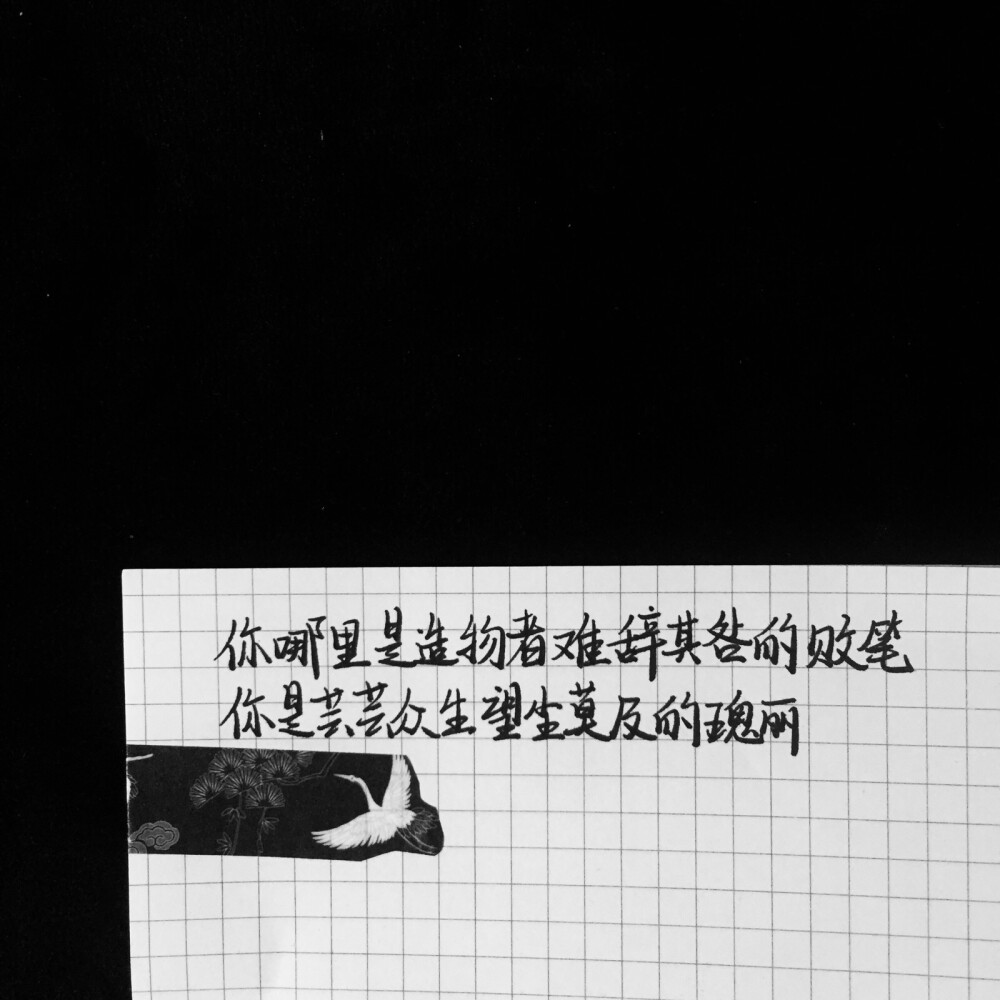 你哪里是造物者难辞其咎的败笔
你是芸芸众生望尘莫及的瑰丽